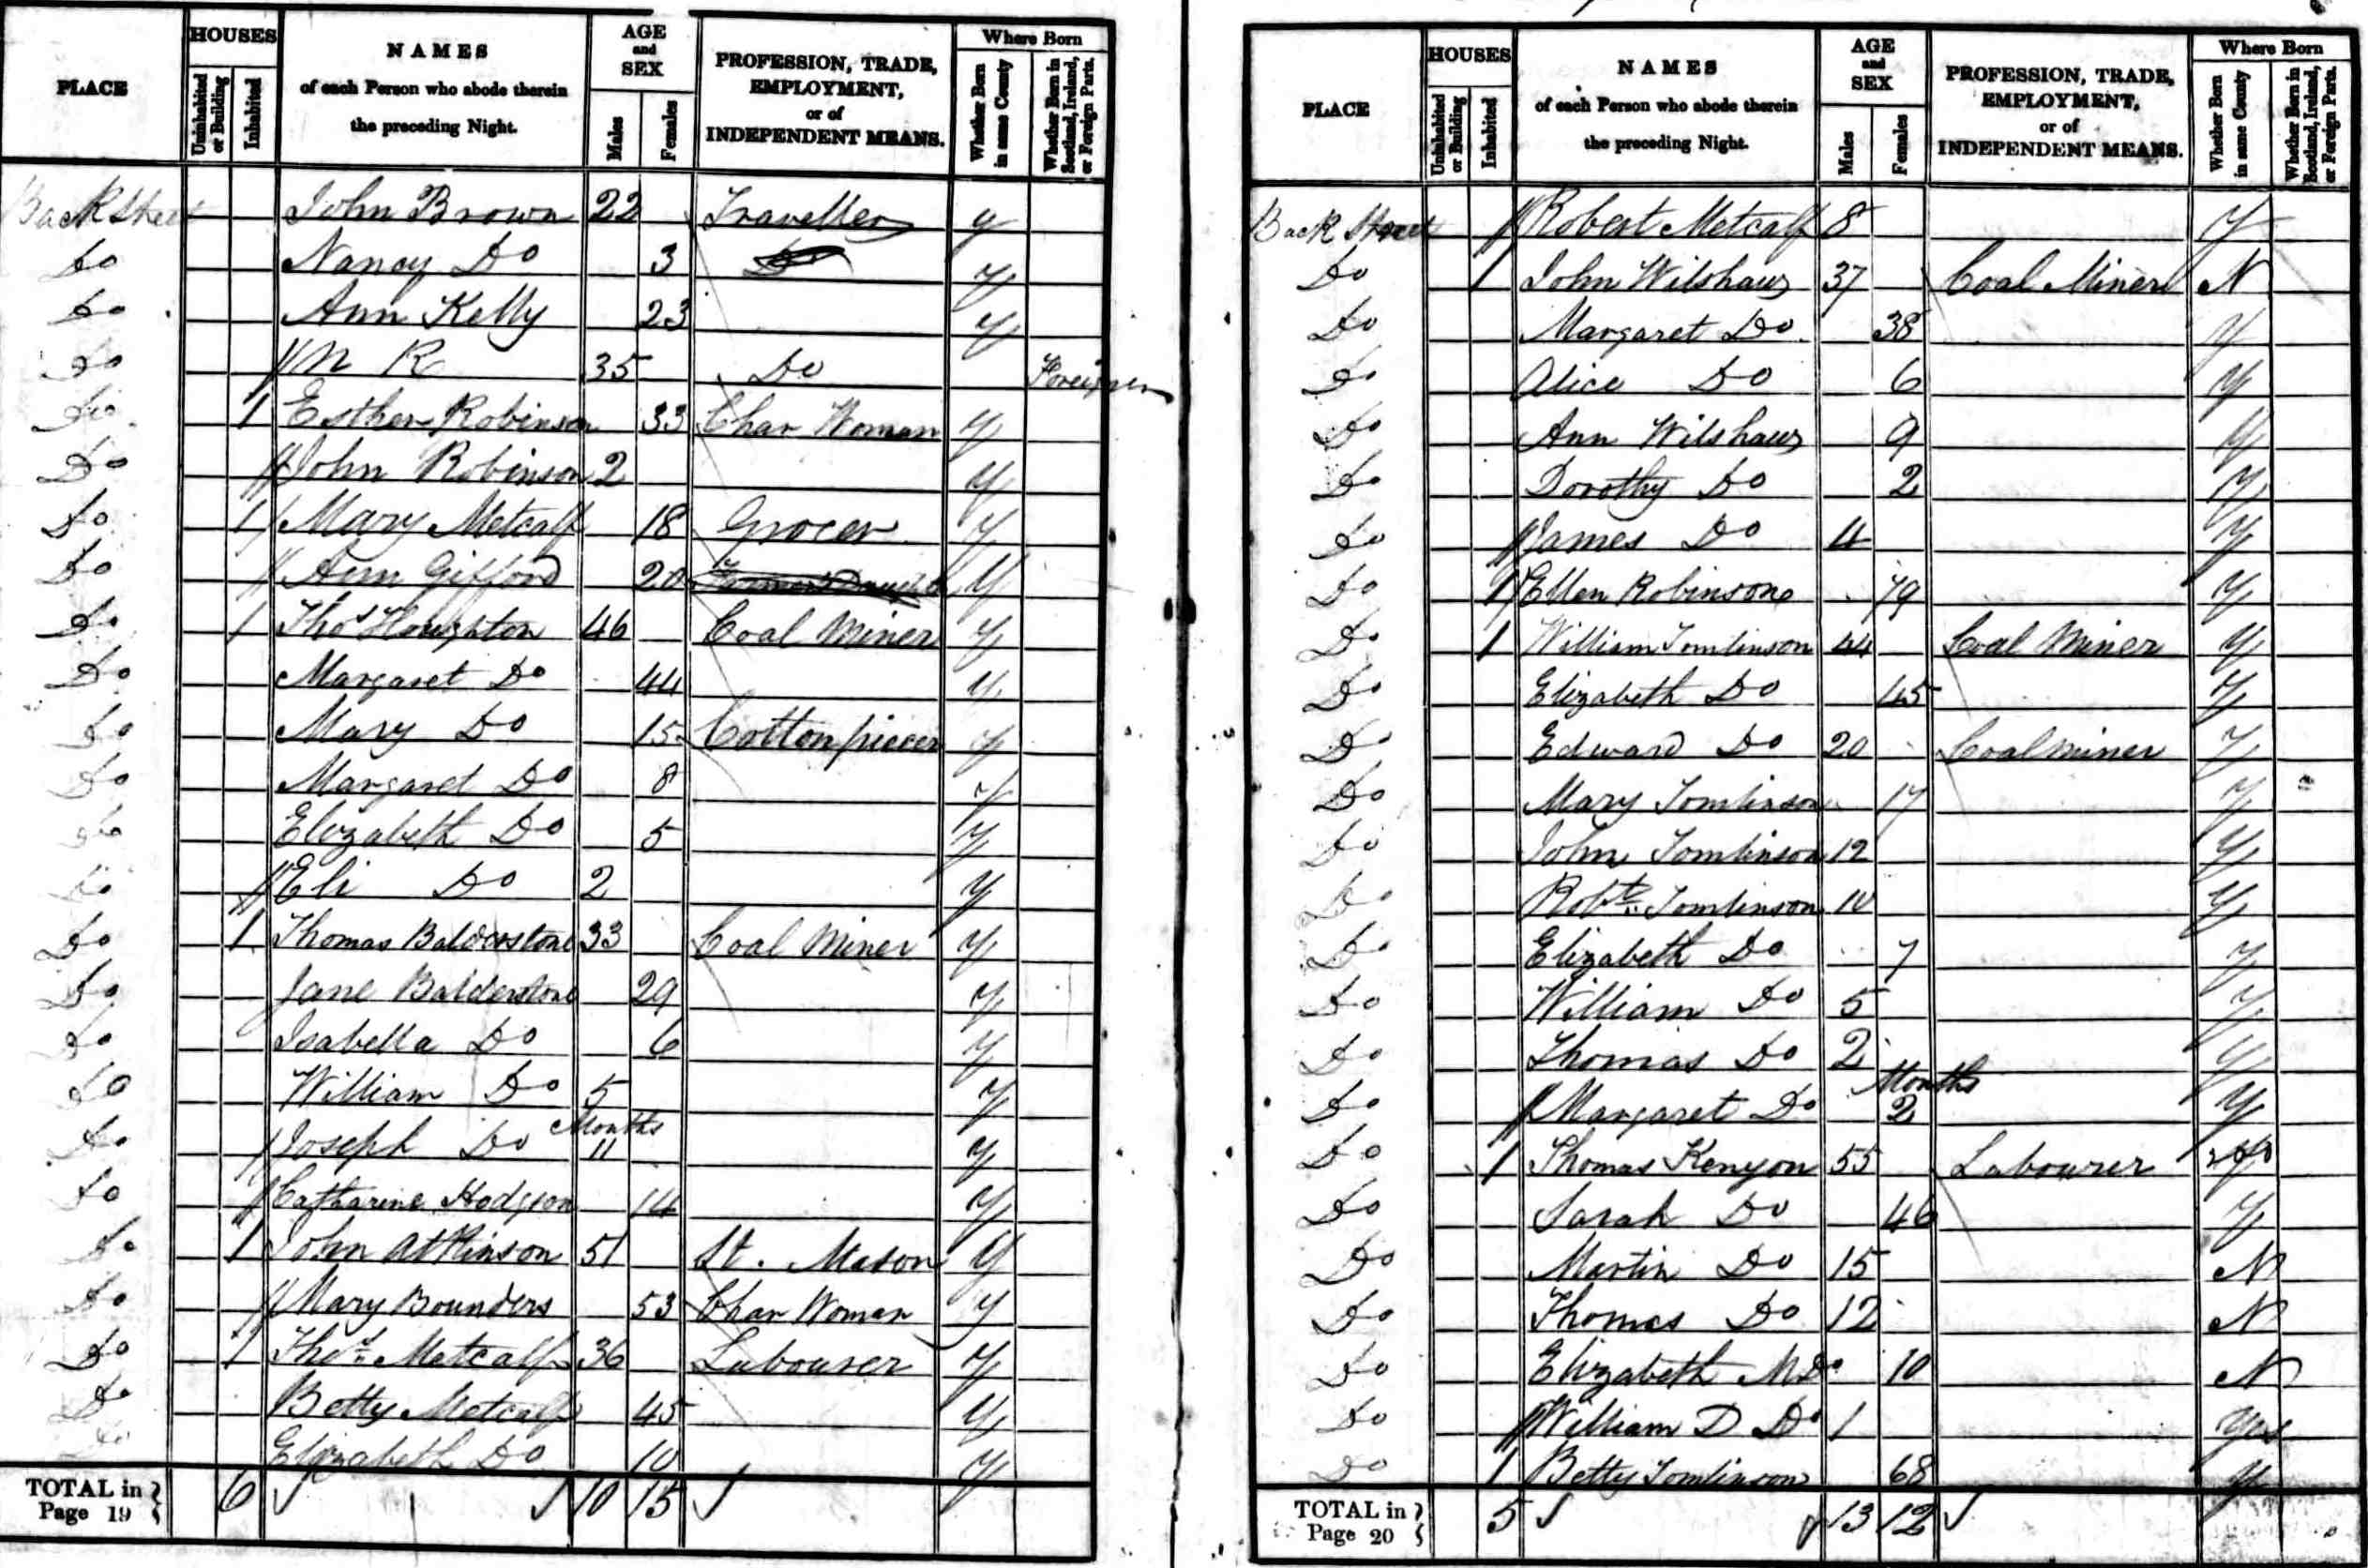 PLACE HOUSES Uninhabited or Building Inhabited NAMES of each Person who abode therein the preceding Night. AGE and SEX Males Females PROFESSION, TRADE, EMPLOYMENT, or of INDEPENDENT MEANS. Where Born Whether Born in same County Whether Born in Scotland, Ireland, or Foreign Parts.
Back Street John Brown 22 Traveller y
Do Nancy Do 3 Do y
Do Ann Kelly 23 y
Do // N K 35 Do Foreigner
Do 1 Esther Robinson 33 Char Woman y
Do // John Robinson 2 y
Do 1 / Mary Metcalf 18 Grocer y
Do // Ann Gifford 20 y
Do 1 Thos Houghton 46 Coal Miner y
Do Margaret Do 44 y
Do Mary Do 15 Cotton piecer y
Do Margaret Do 8 y
Do Elizabeth Do 5 y
Do // Eli Do 2 y
Do 1 Thomas Balderstone 33 Coal Miner y
Do Jane Balderstone 29 y
Do Isabella Do 6 y
Do William Do 5 y
Do // Joseph Do Months 11 y
Do // Catharine Hodgson 14 y
Do 1 John Atkinson 51 St. Mason y
Do // Mary Bounders 53 Char Woman y
Do 1 Thos. Metcalf 36 Labourer y
Do Betty Metcalf 45 y
Do Elizabeth Do 10 y
TOTAL in Page 19 6 10 15
PLACE HOUSES Uninhabited or Building Inhabited NAMES of each Person who abode therein the preceding Night. AGE and SEX Males Females PROFESSION, TRADE, EMPLOYMENT, or of INDEPENDENT MEANS. Where Born Whether Born in same County Whether Born in Scotland, Ireland, or Foreign Parts.
Back Street // Robert Metcalf 8 y
Do 1 John Wilshaw 37 Coal Miner N
Do Margaret Do 38 y
Do Alice Do 6 y
Do Ann Wilshaw 9 y
Do Dorothy Do 2 y
Do // James Do 4 y
Do 1 / Ellen Robinson 79 y
Do 1 William Tomlinson 44 Coal Miner y
Do Elizabeth Do 45 y
Do Edward Do 20 Coal miner y
Do Mary Tomlinson 17 y
Do John Tomlinson 12 y
Do Robt. Tomlinson 10 y
Do Elizabeth Do 7 y
Do William Do 5 y
Do Thomas Do 2 y
Do // Margaret Do Months 2 y
Do 1 Thomas Kenyon 55 Labourer
Do Sarah Do 46 y
Do Martin Do 15 N
Do Thomas Do 12 N
Do Elizabeth M Do 10 N
Do // William D Do 1 yes
Do 1 Betty Tomlinson 68 y
TOTAL in Page 20 5 13 12